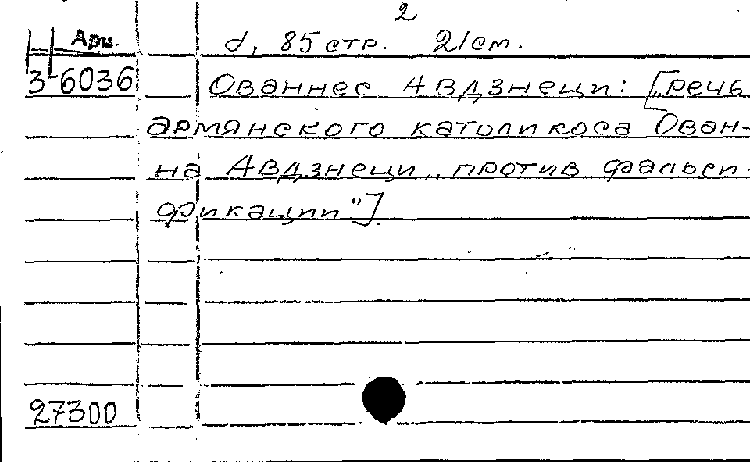 2
Арм.
d, 85 стр. 21 см.
3-6036
Ованнес Авдзнеци: [речь
армянского католикоса Ован-
на Авдзнеци „против фальси-
фикации"]
27300